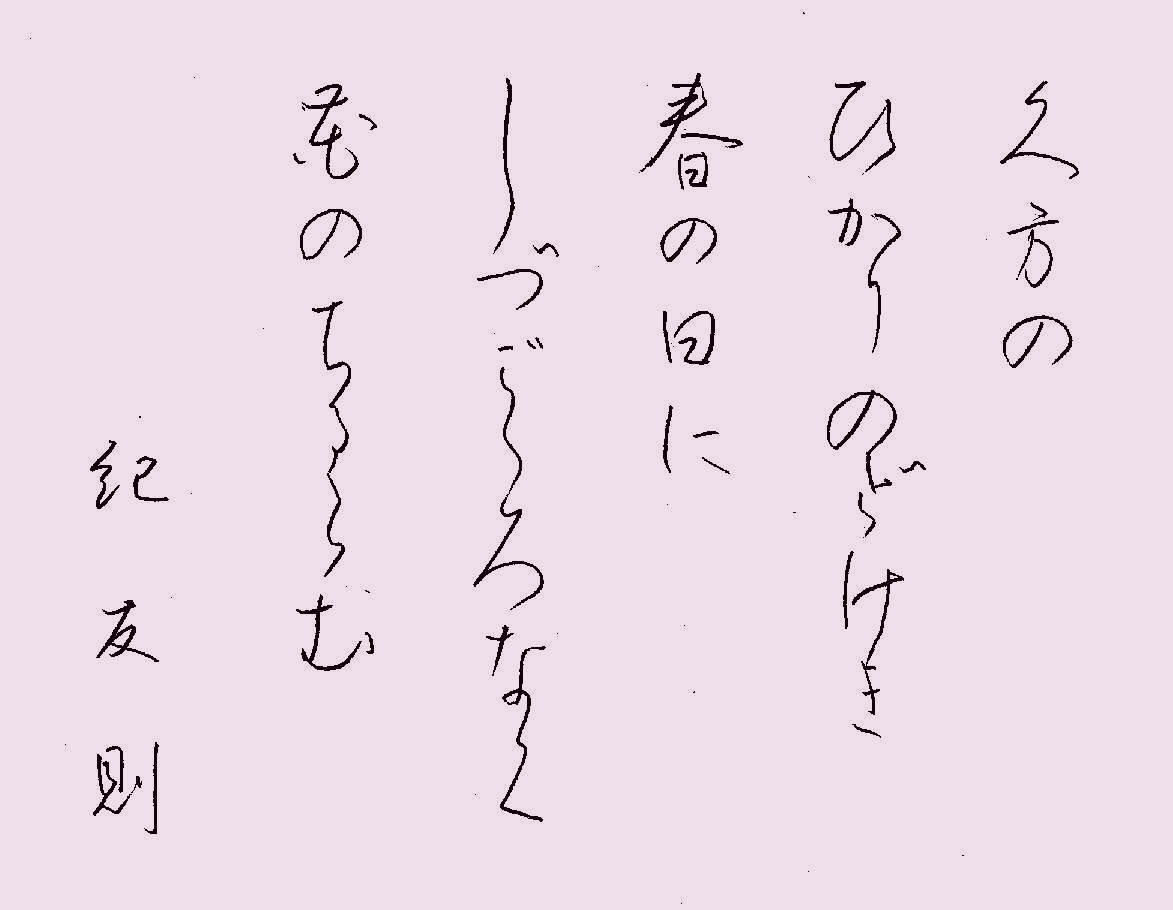 久方の
ひかりのどけき
春の日に
しづごころなく
花のちるらむ
紀友則